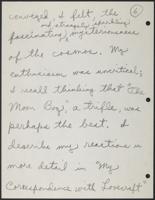 conveyed, I felt the
and strangely sparkling
6
fascinating mysteriousness
of the cosmos. My
enthusiasm was uncritical;
I recall thinking that "The
Moon Bog," a trifle, was
perhaps the best. I
describe my reactions in
more detail in "My
Correspondence with Lovecraft"